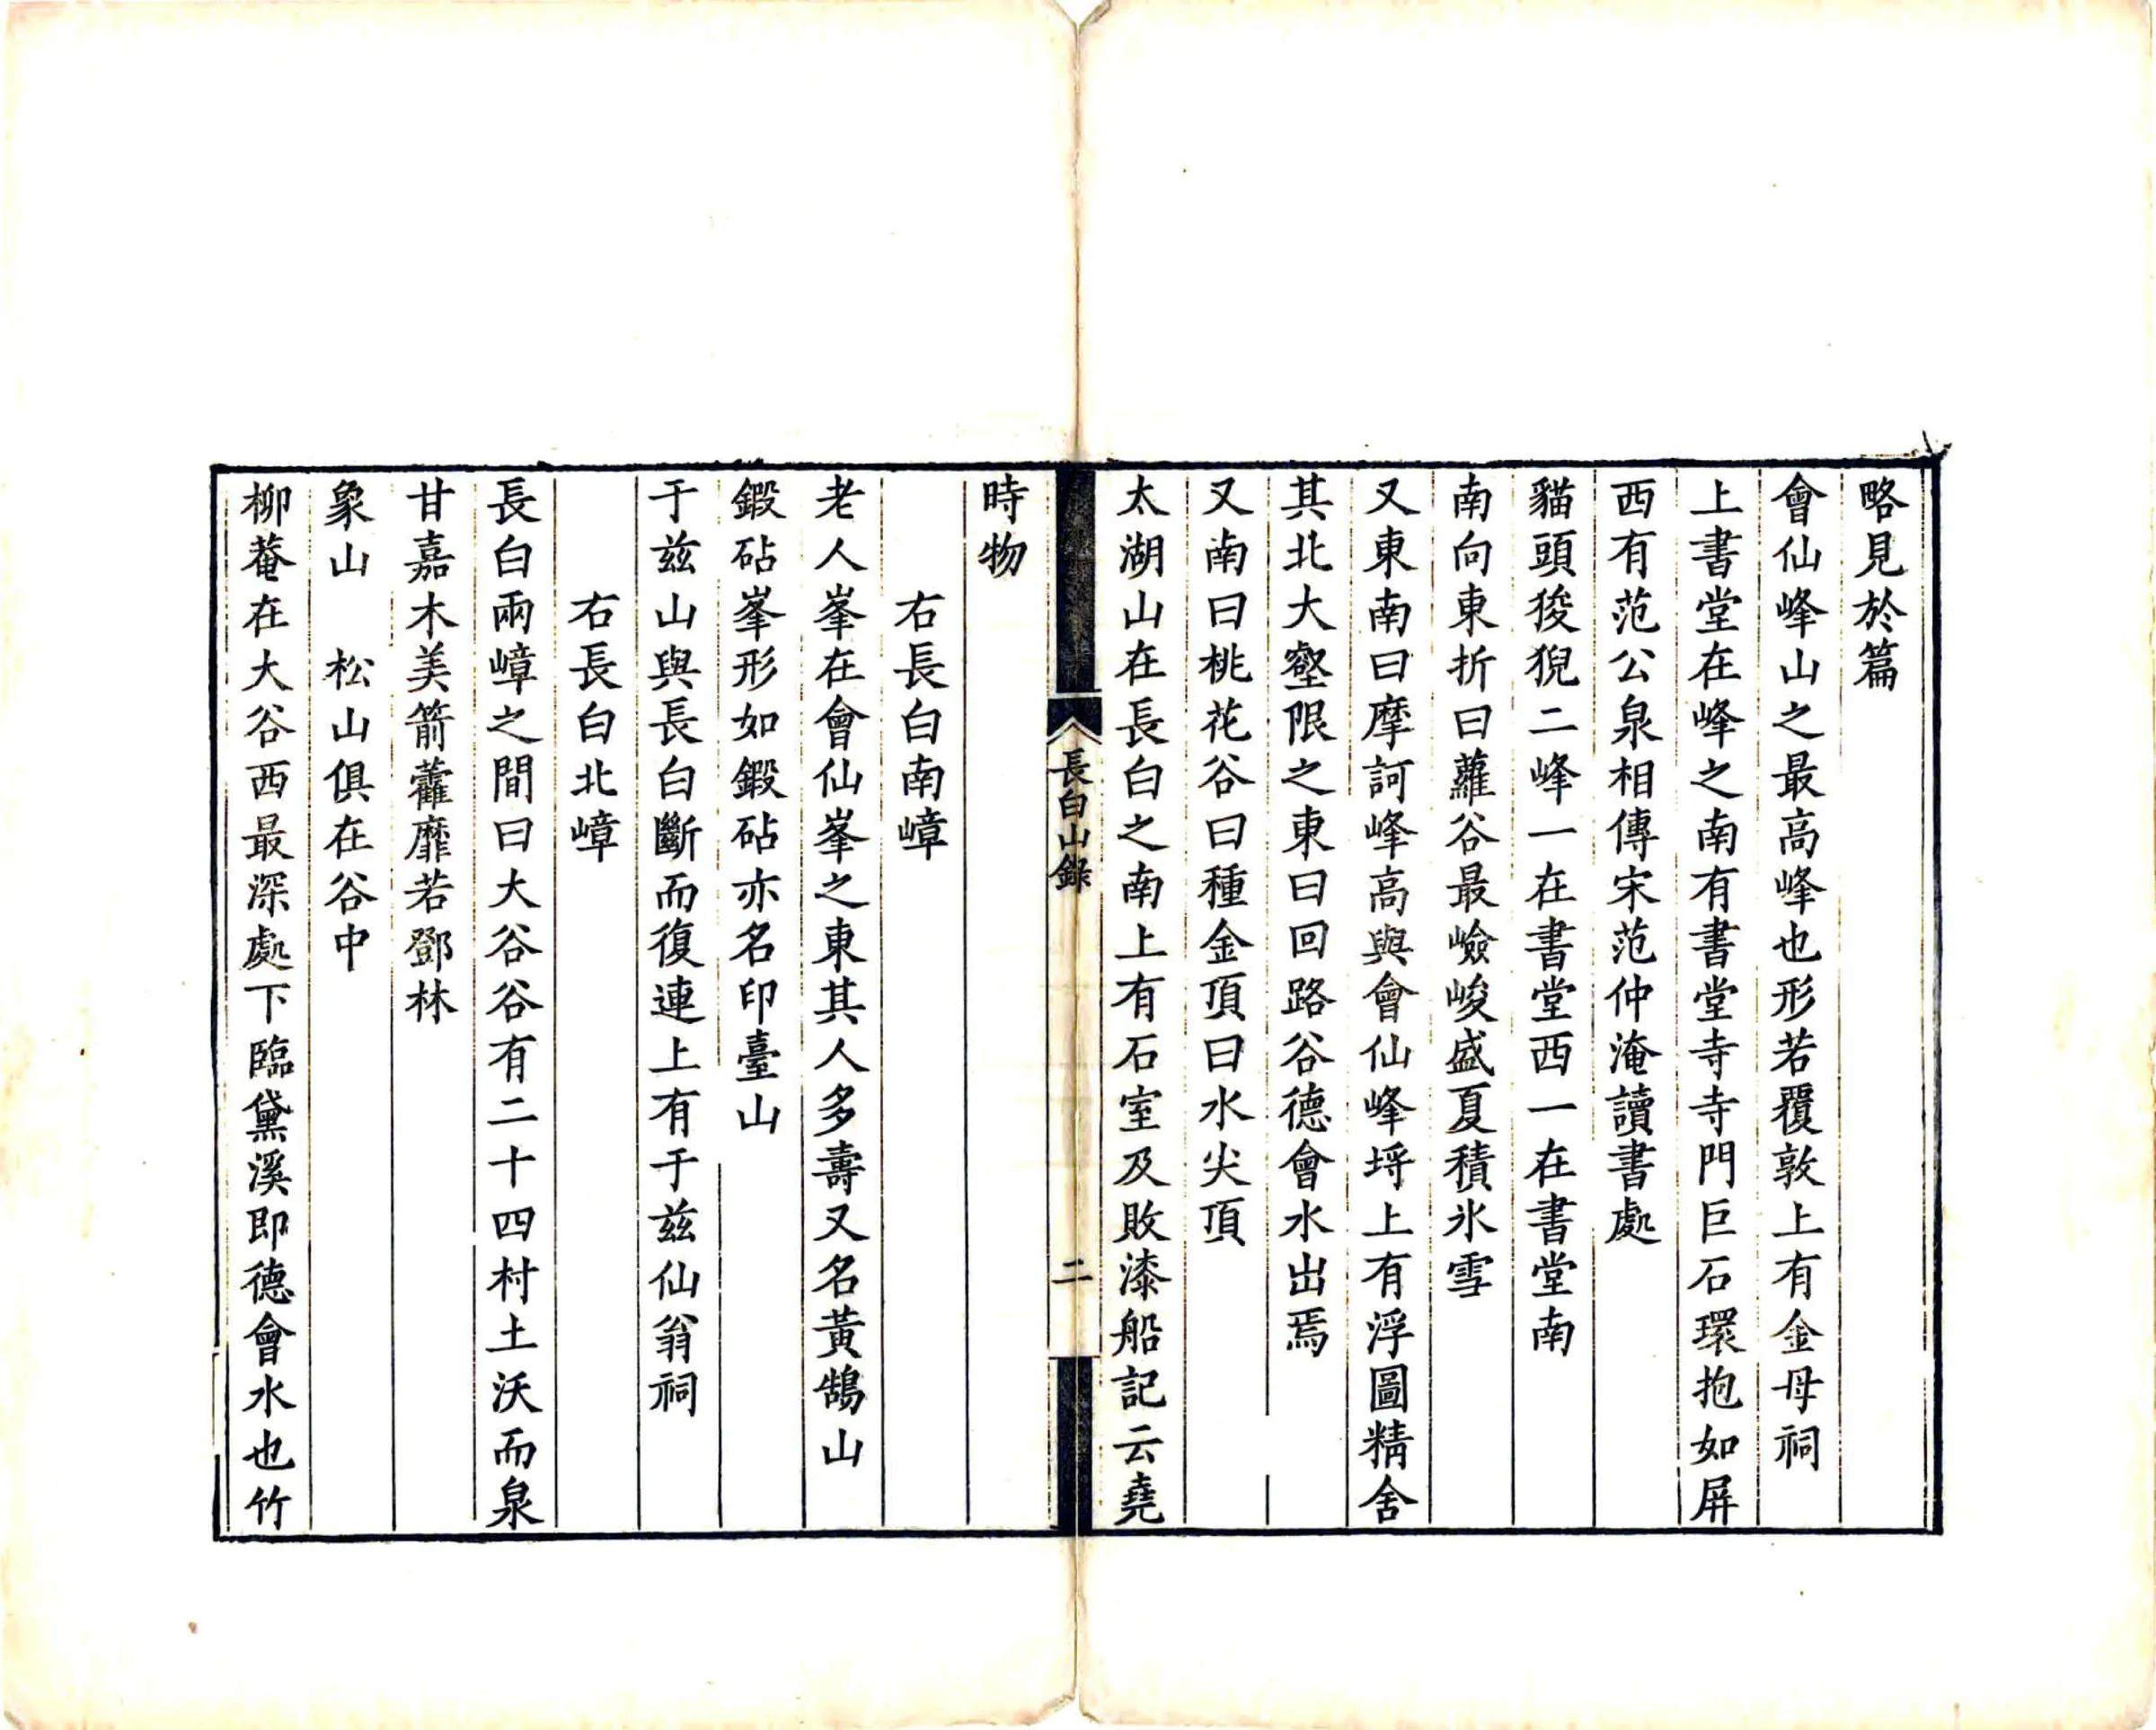 略見於篇
會仙峰山之最高峰也形若覆敦上有金母祠
上書堂在峰之南有書堂寺寺門巨石環抱如屏
西有范公泉相傳宋范仲淹讀書處
貓頭狻猊二峰一在書堂西一在書堂南
南向東折曰蘿谷最嶮峻盛夏積氷雪
又東南曰摩訶峰高與會仙峰埒上有浮圖精舍
其北大壑限之東曰回路谷德會水出焉
又南曰桃花谷曰種金頂曰水尖頂
太湖山在長白之南上有石室及敗漆船記云堯
長白山錄
二
時物
右長白南嶂
老人峯在會仙峯之東其人多壽又名黃鵠山
鍛砧峯形如鍛砧亦名印臺山
于兹山與長白斷而復連上有于兹仙翁祠
右長白北嶂
長白兩嶂之間曰大谷谷有二十四村土沃而泉
甘嘉木美箭藿靡若鄧林
象山　松山俱在谷中
柳菴在大谷西最深處下臨黛溪即德會水也竹